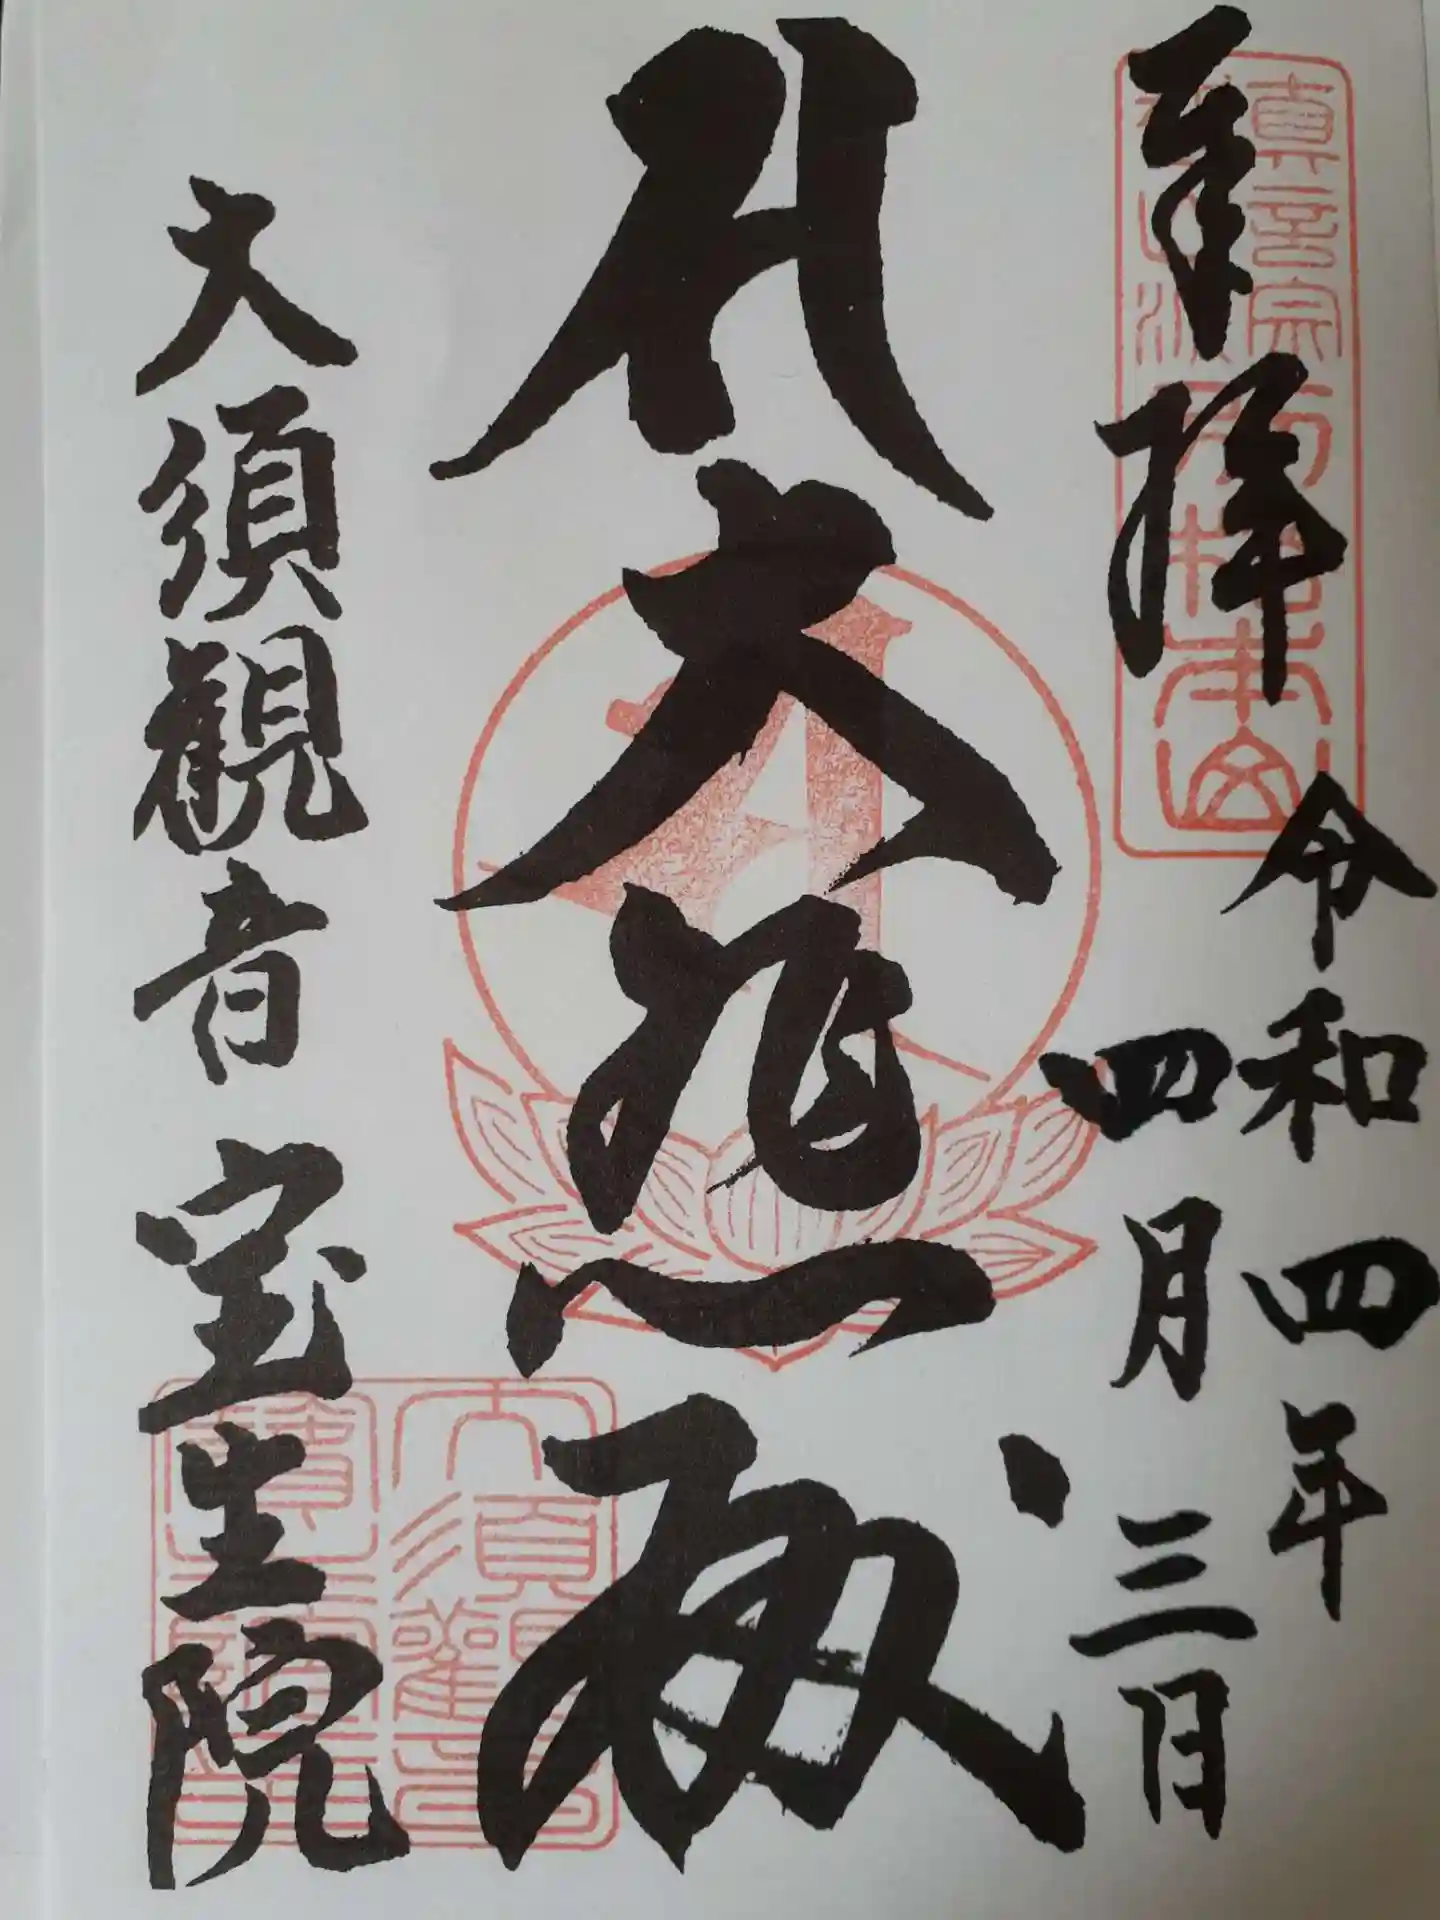 奉拝
令和四年
四月三日
大悲殿
大須観音 宝生院
真言宗
智山派
別格本山
大須觀音
寶生院